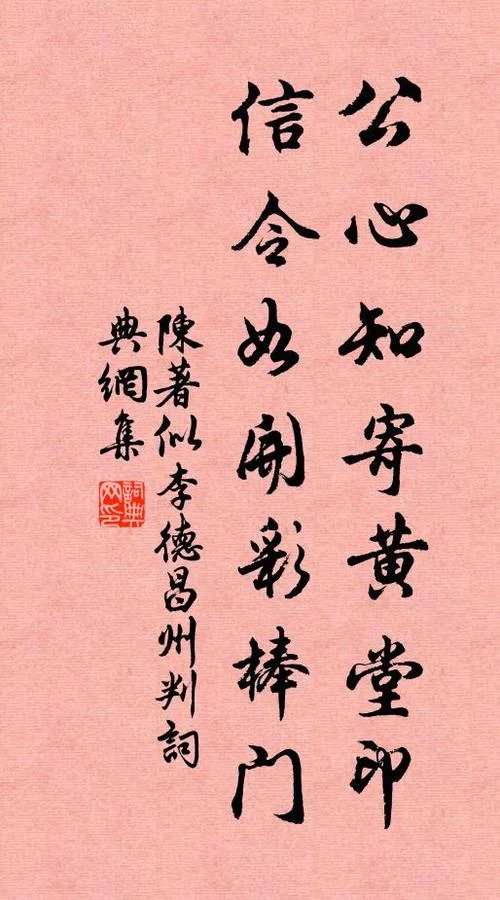 公心知寄黄堂印
信令如開彩棒門
陳著似李德昌州判詞
典網集
詞典网印